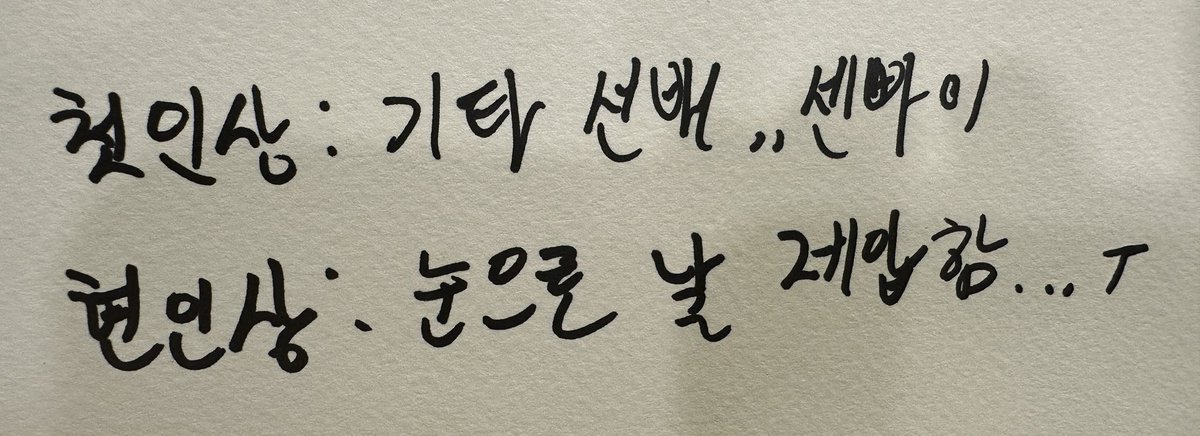 첫인상: 기타 선배,, 센빠이
현인상: 눈으로 날 제압함...ㅜ